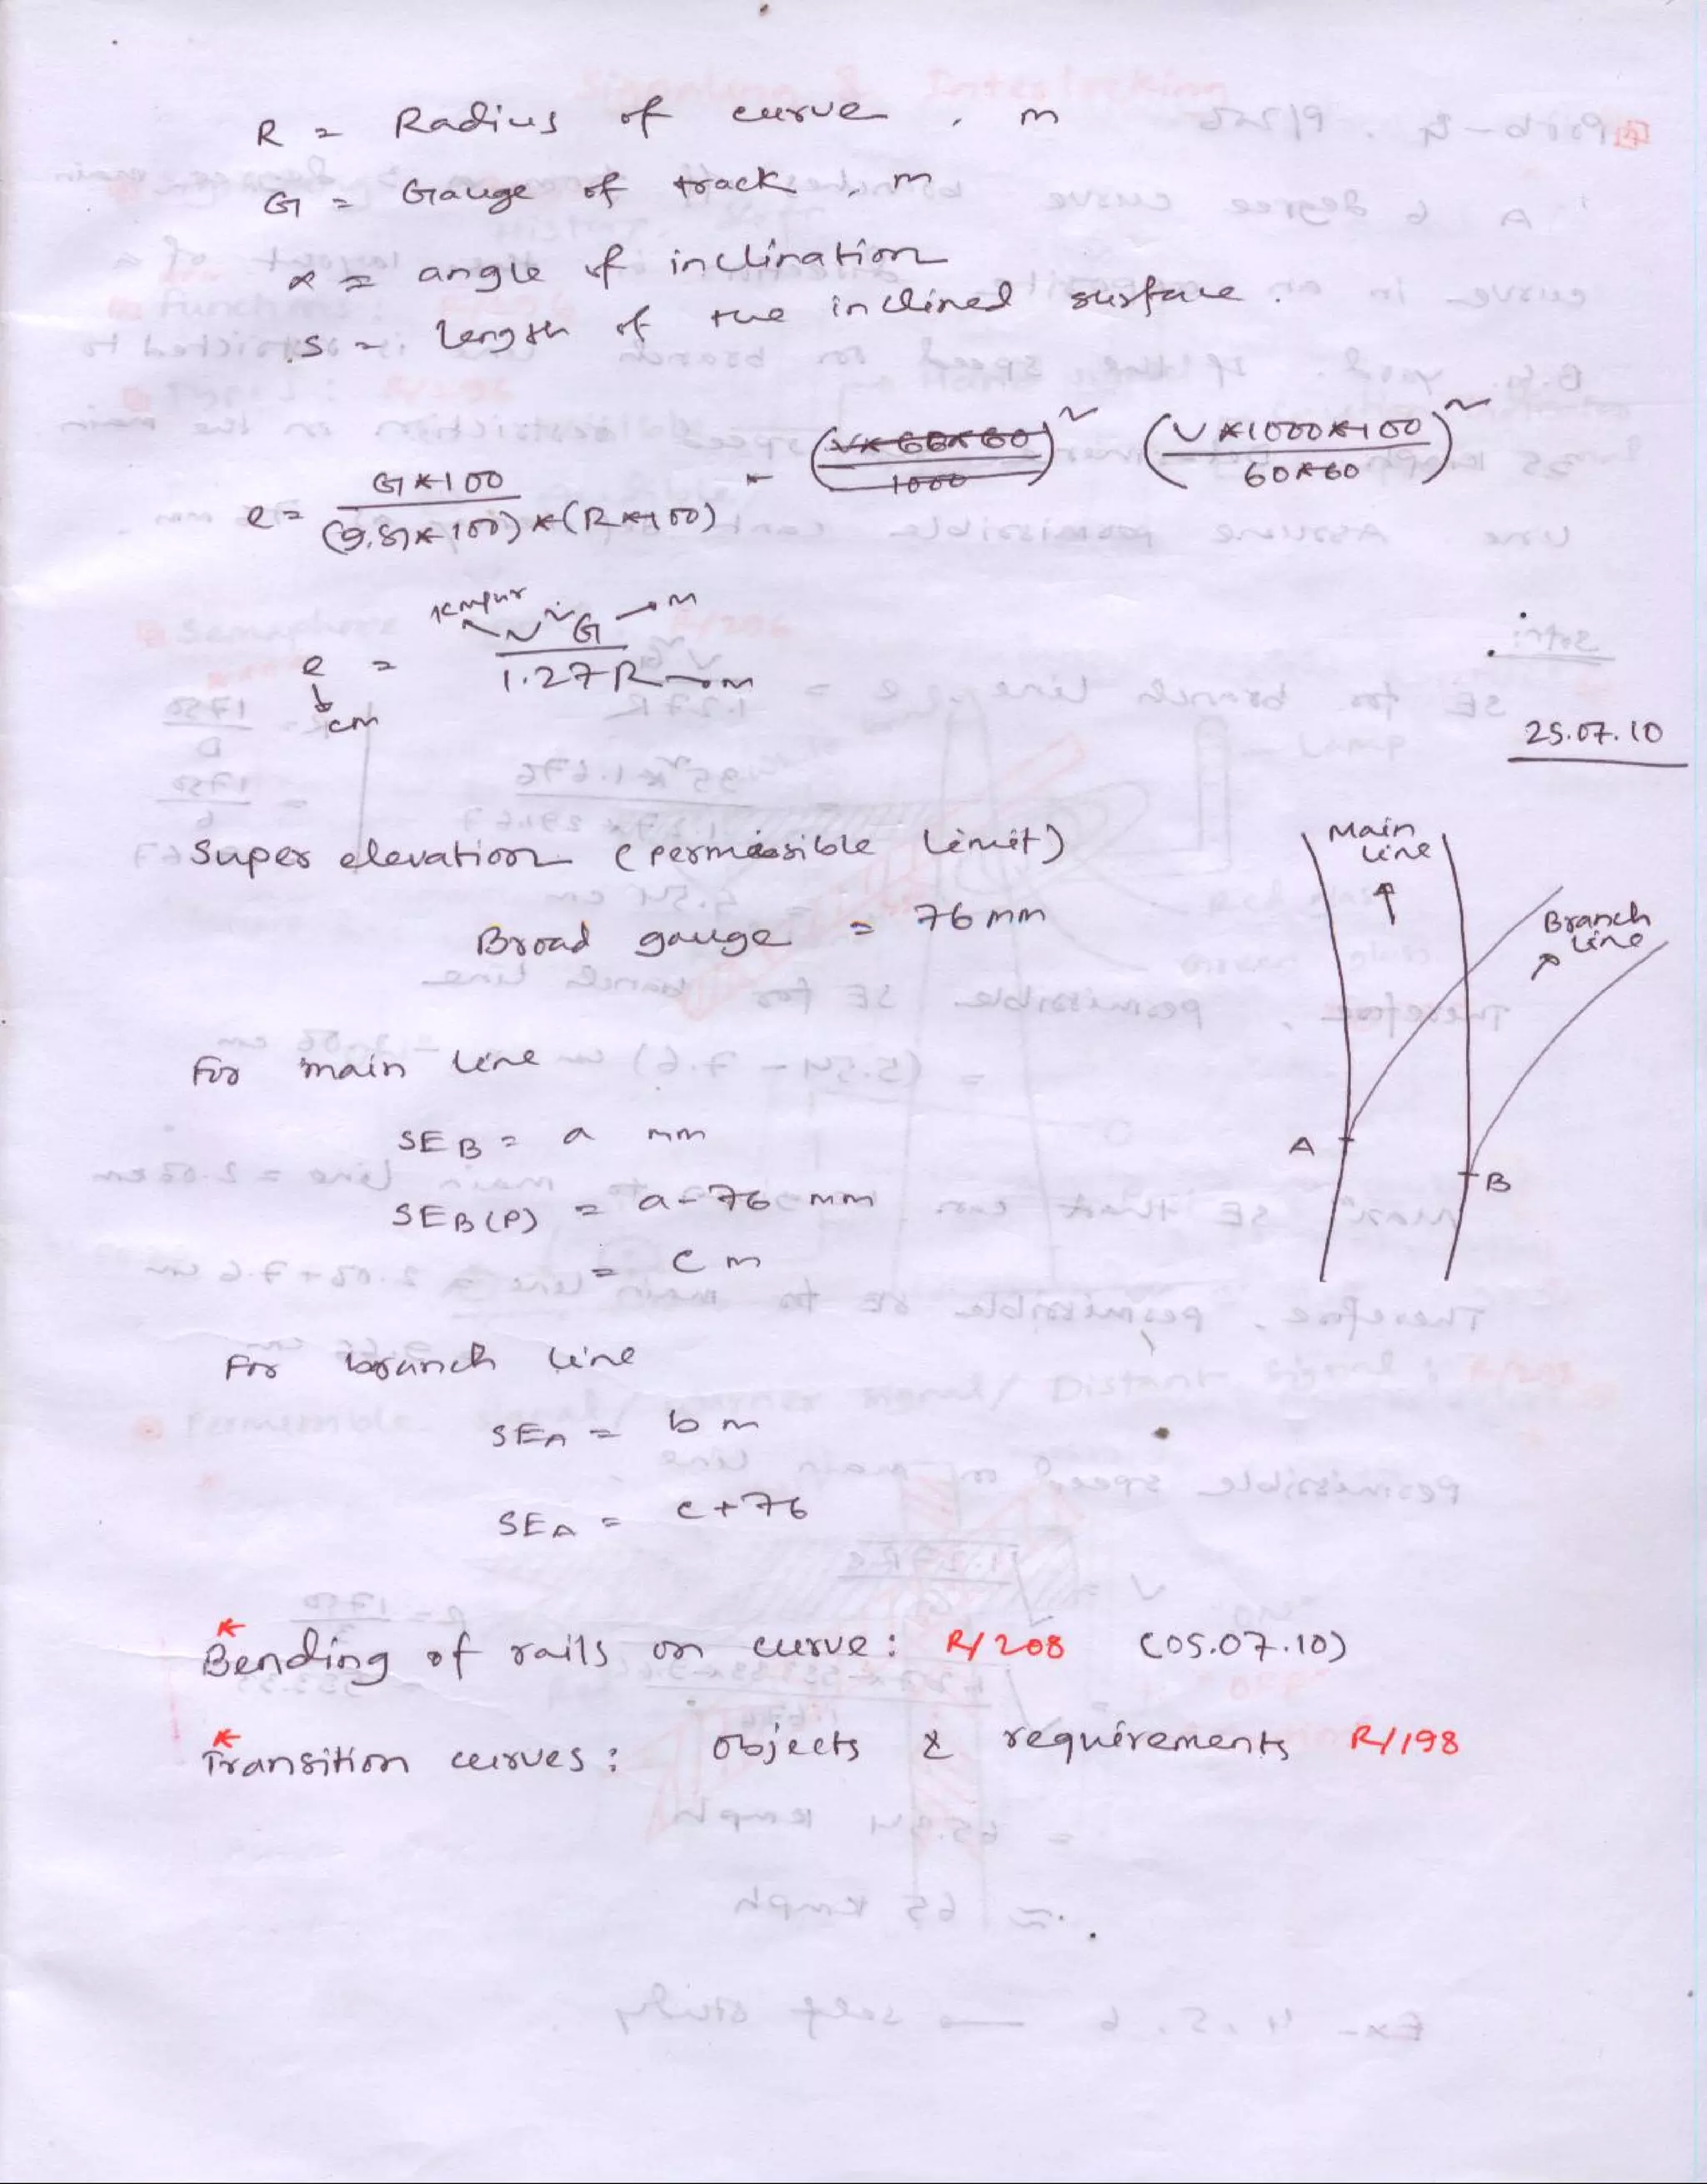 R = Radius of curve, m
G = Gauge of track, m
α = angle of inclination
S = length of the inclined surface.
e = G*100 / (9.81*100)*(R*100) * (V*60*60 / 1000)² (V*1000*100 / 60*60)²
kmpur
e = V²G → m / 1.27R → m
cm
25.07.10
Super elevation (permissible limit)
Broad gauge = 76 mm
Main line
Branch line
A
B
For main line
SE B = a mm
SE B(P) = a-76 mm
= c m
For branch line
SE A = b m
SE A = c+76
Bending of rails on curve: R/208 (05.07.10)
Transition curves: objects & requirements R/198